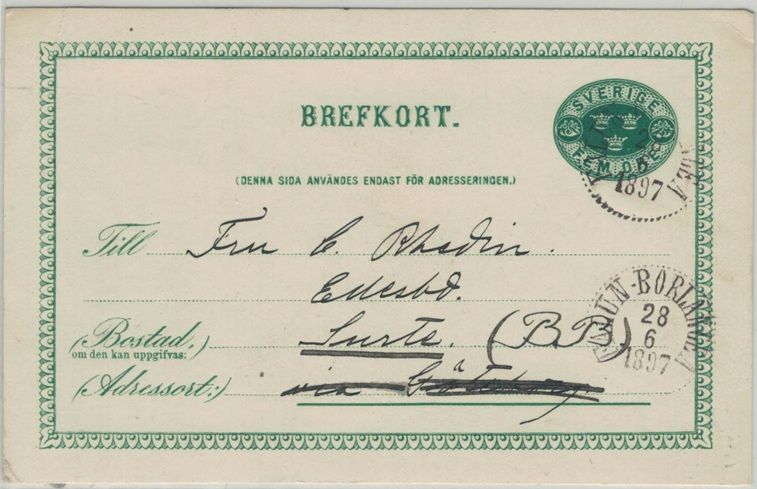 BREFKORT.
SVERIGE
FEM ÖRE
(DENNA SIDA ANVÄNDES ENDAST FÖR ADRESSERINGEN.)
1897
Till Fru C. Rhedin.
Edesbo.
(Bostad, Surte. (BB)
om den kan uppgifvas:)
(Adressort:) via Göteborg
FALUN-BORLÄNGE
28
6
1897